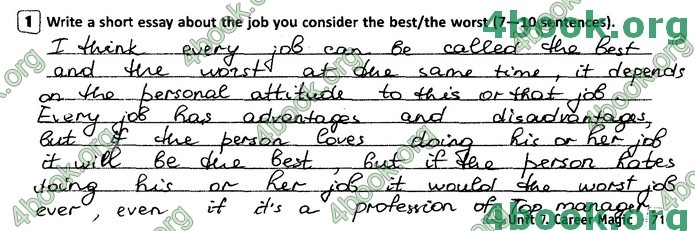 1 Write a short essay about the job you consider the best/the worst (7—10 sentences).
I think every job can be called the best
and the worst at the same time, it depends
on the personal attitude to this or that job
Every job has advantages and disadvantages,
but if the person loves doing his or her job
it will be the best, but if the person hates
doing his or her job it would the worst job
ever, even if it's a profession of Top manager
Unit 7. Career Magic 71
4book.org
4book.org
4book.org
4book.org
4book.org
4book.org
4book.org
4book.org